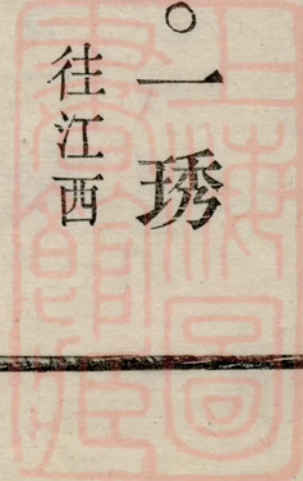 ○一琇
往江西